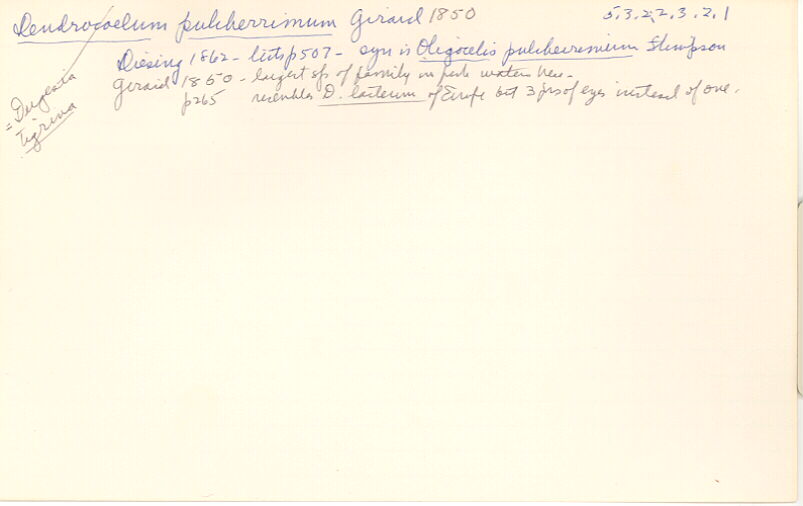 Dendrocoelum pulcherrimum Girard 1850 5.3.2.2.3.2.1
Diesing 1862 - lists p507 - syn is Oligocelis pulcherrimum Stimpson
Girard 1850 - largest sp of family in fresh waters here -
p265 resembles D. lacteum of Europe but 3 prs of eyes instead of one.
= Dugesia
tigrina